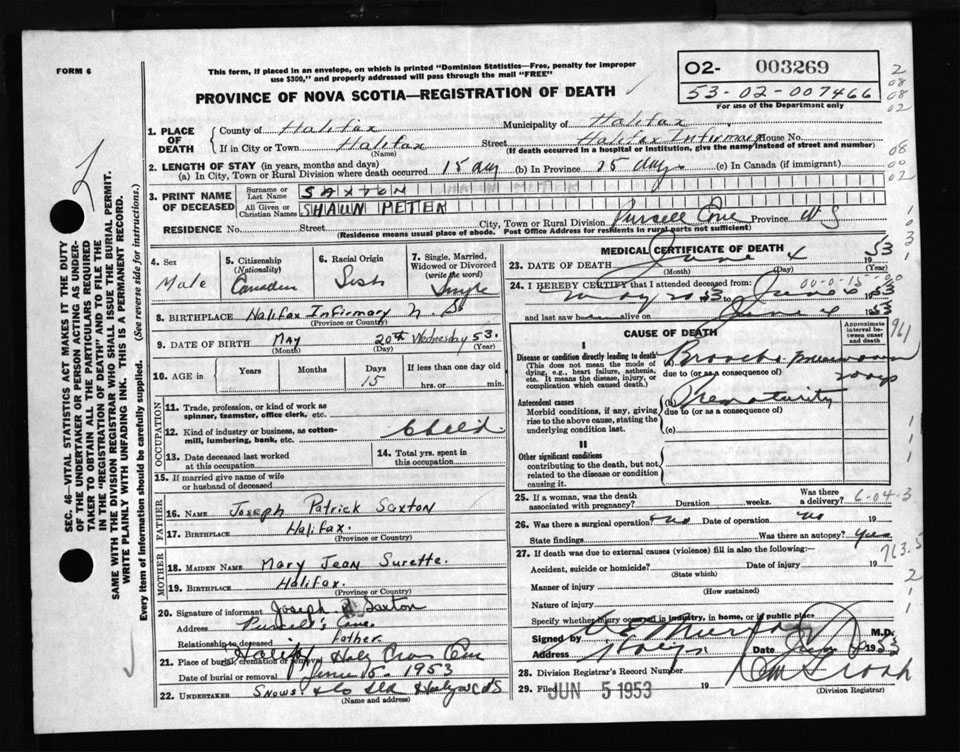 FORM 6
This form, if placed in an envelope, on which is printed "Dominion Statistics—Free, penalty for improper
use $300," and properly addressed will pass through the mail "FREE"
PROVINCE OF NOVA SCOTIA—REGISTRATION OF DEATH
O2- 003269
53-02-007466
For use of the Department only
1. PLACE OF DEATH
County of Halifax
Municipality of Halifax
If in City or Town Halifax
(Name)
Street Halifax Infirmary House No.
(If death occurred in a hospital or institution, give the name instead of street and number)
2. LENGTH OF STAY (in years, months and days)
(a) In City, Town or Rural Division where death occurred 15 days (b) In Province 15 days (c) In Canada (if immigrant)
3. PRINT NAME OF DECEASED
Surname or Last Name SAXTON
All Given or Christian Names SHAUN PETTER
RESIDENCE No. Street City, Town or Rural Division Pursell Cove Province N S
(Residence means usual place of abode. Post Office Address for residents in rural parts not sufficient)
4. Sex
Male
5. Citizenship
(Nationality)
Canadian
6. Racial Origin
Irish
7. Single, Married,
Widowed or Divorced
(write the word)
Single
8. BIRTHPLACE Halifax Infirmary N.S.
(Province or Country)
9. DATE OF BIRTH May 20th Wednesday 53.
(Month) (Day) (Year)
10. AGE in
Years Months Days 15
If less than one day old
hrs. or min.
OCCUPATION
11. Trade, profession, or kind of work as
spinner, teamster, office clerk, etc.
12. Kind of industry or business, as cotton-
mill, lumbering, bank, etc.
Child
13. Date deceased last worked
at this occupation
14. Total yrs. spent in
this occupation
15. If married give name of wife
or husband of deceased
FATHER
16. NAME Joseph Patrick Saxton
17. BIRTHPLACE Halifax.
(Province or Country)
MOTHER
18. MAIDEN NAME Mary Jean Surette.
19. BIRTHPLACE Halifax.
(Province or Country)
20. Signature of informant Joseph P. Saxton
Address Purcell's Cove
Relationship to deceased Father
21. Place of burial, cremation or removal Halifax Holy Cross Cem
Date of burial or removal June 5 - 1953
22. UNDERTAKER Snows & Co Ltd Halifax N.S.
(Name and address)
MEDICAL CERTIFICATE OF DEATH
23. DATE OF DEATH June 4 1953
(Month) (Day) (Year)
24. I HEREBY CERTIFY that I attended deceased from:
May 20 53 to June 1953
and last saw h alive on June 4 1953
00-0-15
CAUSE OF DEATH
Approximate
interval between
onset and death
I
Disease or condition directly leading to death
(This does not mean the mode of
dying, e.g., heart failure, asthenia,
etc. It means the disease, injury, or
complication which caused death.)
Broncho pneumonia
due to (or as a consequence of)
days
Antecedent causes
Morbid conditions, if any, giving
rise to the above cause, stating the
underlying condition last.
(b) Prematurity
due to (or as a consequence of)
(c)
II
Other significant conditions
contributing to the death, but not
related to the disease or condition
causing it.
25. If a woman, was the death
associated with pregnancy? Duration weeks. Was there
a delivery?
6-04-3
26. Was there a surgical operation? no Date of operation no 19
State findings Was there an autopsy? yes
27. If death was due to external causes (violence) fill in also the following:—
Accident, suicide or homicide? Date of injury 19
(State which)
Manner of injury
(How sustained)
Nature of injury
Specify whether injury occurred in industry, in home, or in public place
Signed by M.D.
Address Date 1953
28. Division Registrar's Record Number
29. Filed JUN 5 1953 19
(Division Registrar)
763.5
SEC. 46—VITAL STATISTICS ACT MAKES IT THE DUTY
OF THE UNDERTAKER OR PERSON ACTING AS UNDER-
TAKER TO OBTAIN ALL THE PARTICULARS REQUIRED
IN THE "REGISTRATION OF DEATH" AND TO FILE THE
SAME WITH THE DIVISION REGISTRAR WHO SHALL ISSUE THE BURIAL PERMIT.
WRITE PLAINLY WITH UNFADING INK. THIS IS A PERMANENT RECORD.
Every item of information should be carefully supplied. (See reverse side for instructions.)